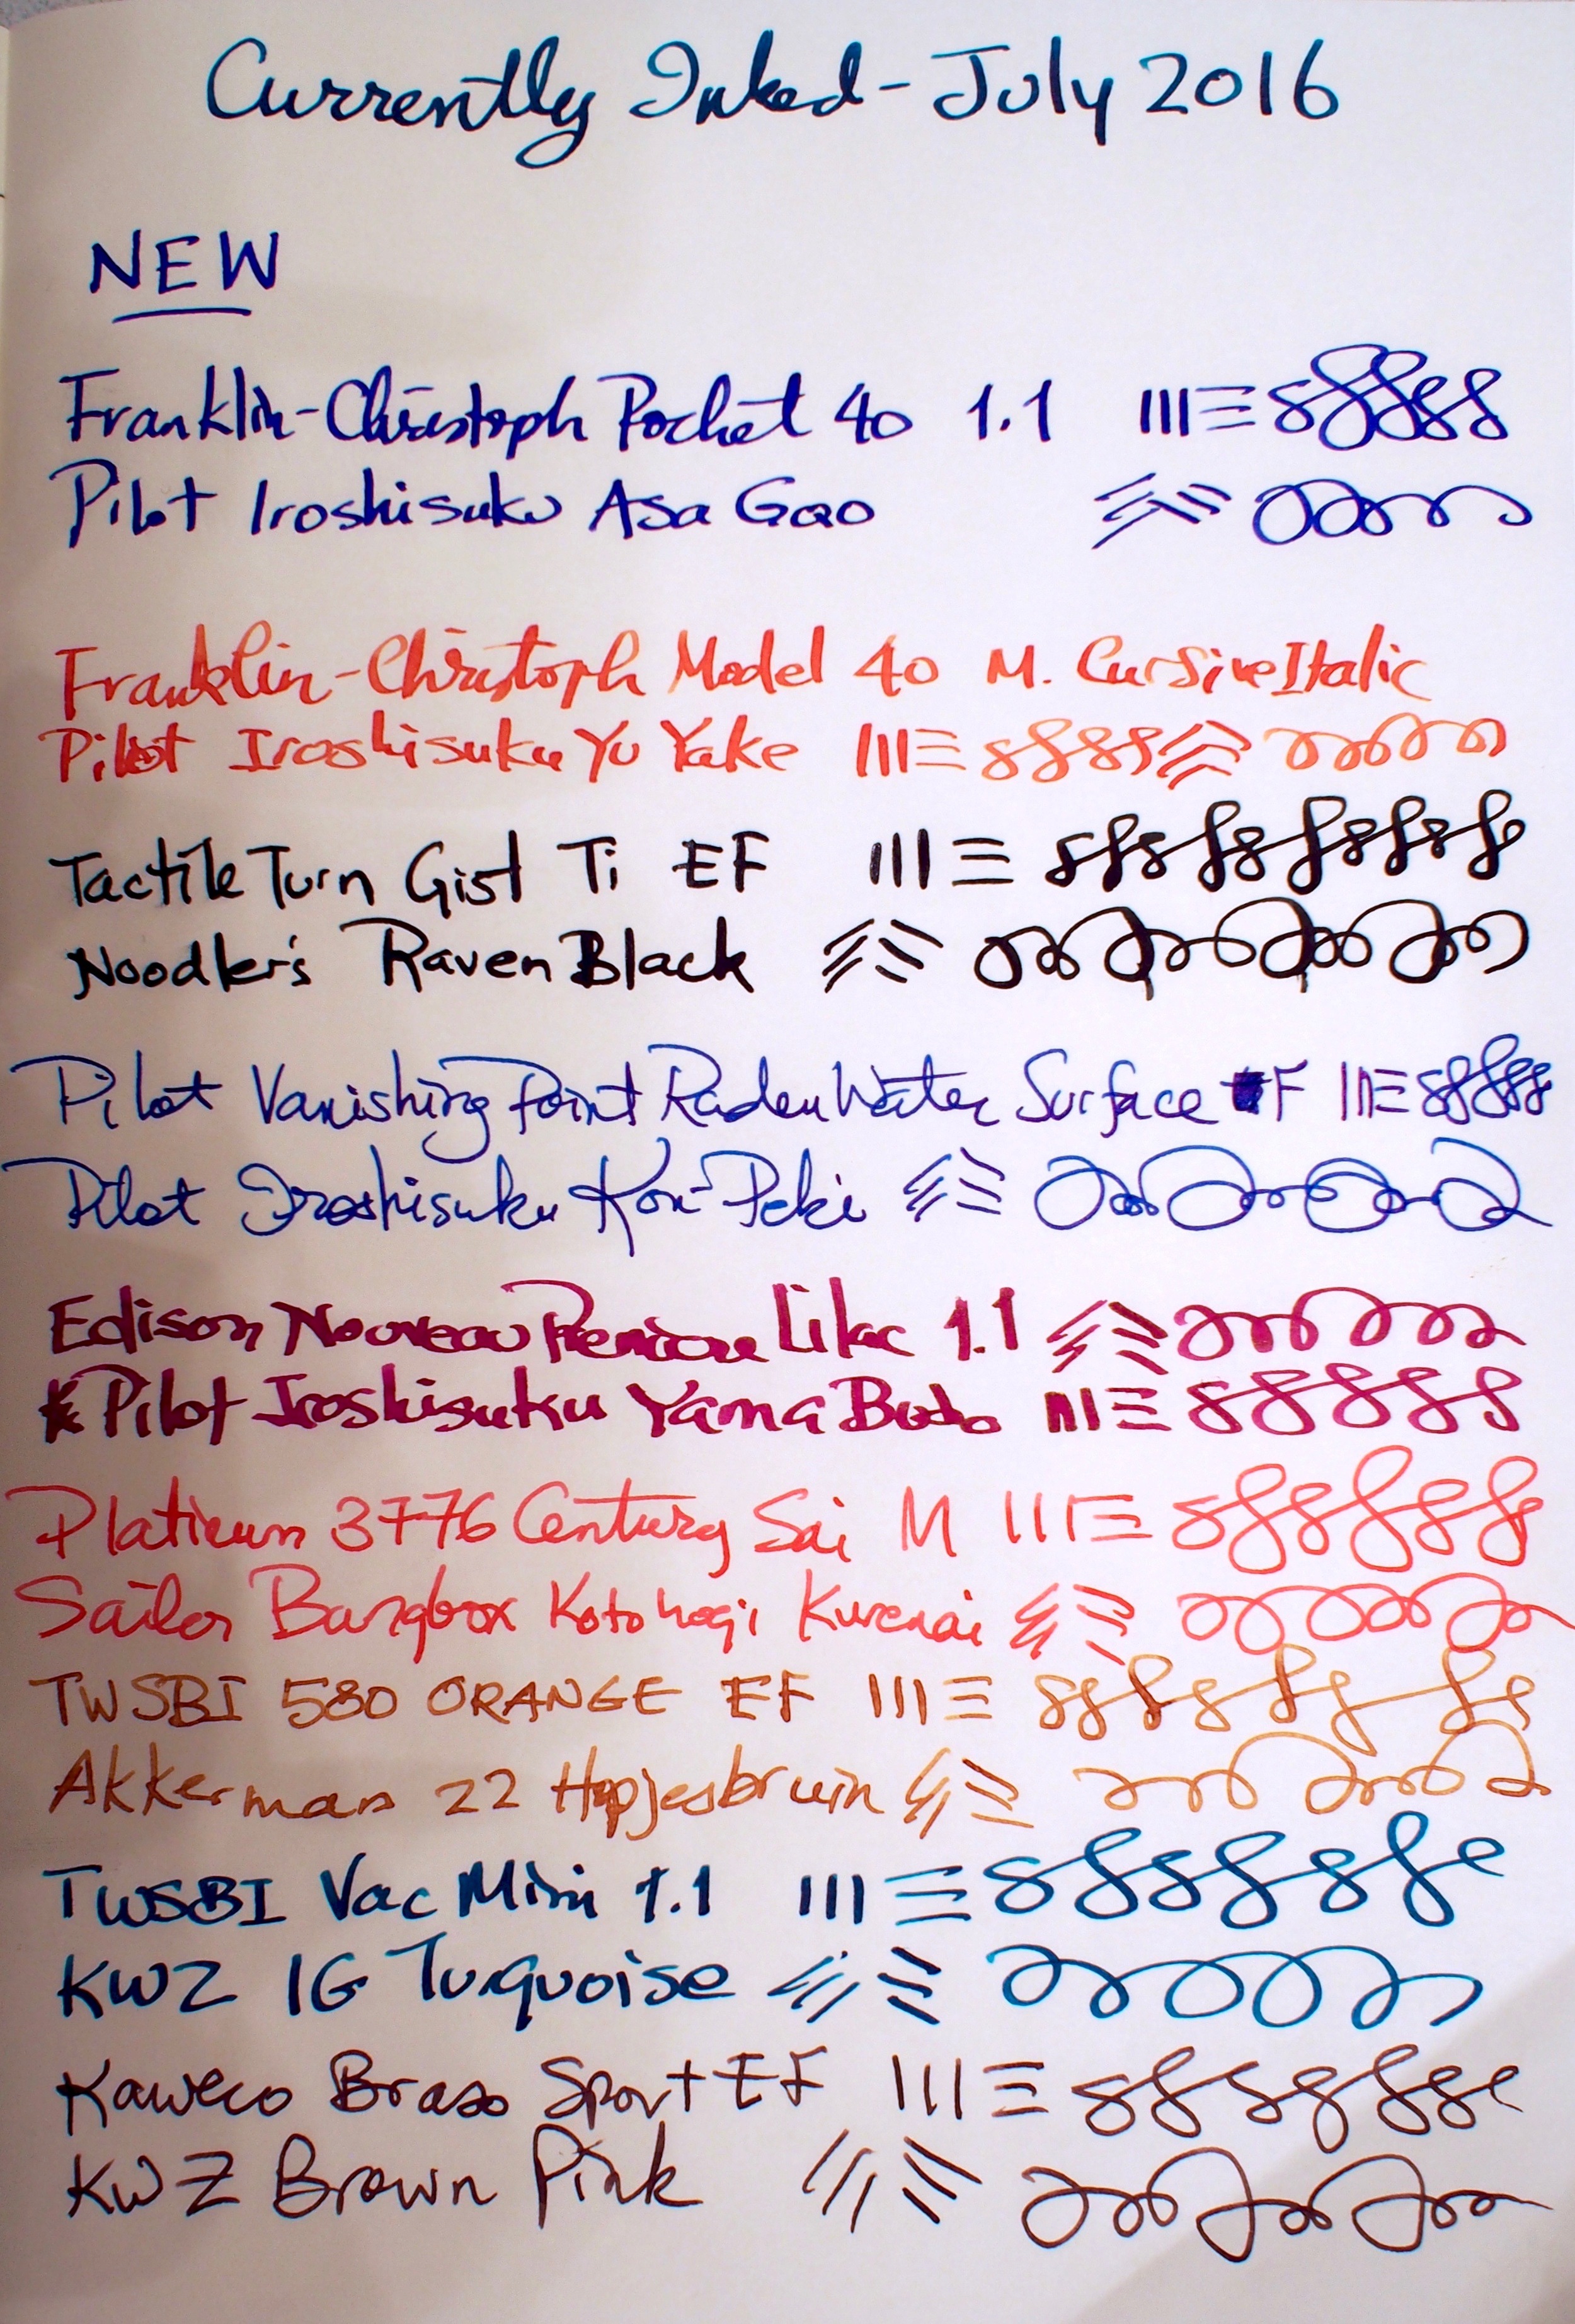 Currently Inked - July 2016
NEW
Franklin-Christoph Pocket 40 1.1
Pilot Iroshisuku Asa Gao
Franklin-Christoph Model 40 M. Cursive Italic
Pilot Iroshisuku Yu Yake
Tactile Turn Gist Ti EF
Noodler's Raven Black
Pilot Vanishing Point Raden Water Surface F
Pilot Iroshisuku Kon-Peki
Edison Nouveau Premiere Lilac 1.1
Pilot Iroshisuku Yama Budo
Platinum 3776 Century Sai M
Sailor Bungbox Kotohogi Kurenai
TWSBI 580 ORANGE EF
Akkerman 22 Hopjesbruin
TWSBI Vac Mini 1.1
KWZ IG Turquoise
Kaweco Brass Sport EF
KWZ Brown Pink